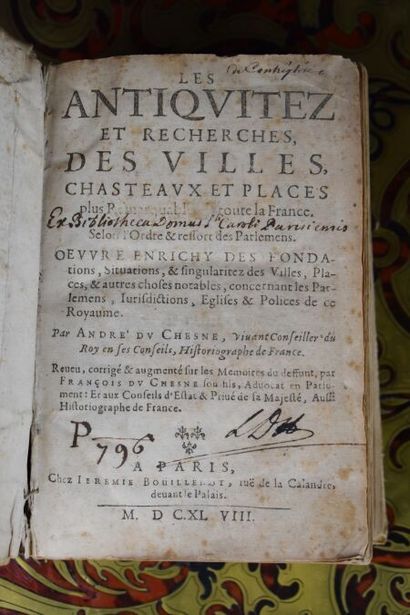 LES
ANTIQVITEZ
ET RECHERCHES,
DES VILLES,
CHASTEAVX ET PLACES
plus toute la France.
Ex Bibliotheca Domus Sti Caroli Parisiensis
Selon l'Ordre & ressort des Parlemens.
OEVVRE ENRICHY DES FONDA-
tions, Situations, & singularitez des Villes, Pla-
ces, & autres choses notables, concernant les Par-
lemens, Iurisdictions, Eglises & Polices de ce
Royaume.
Par ANDRE' DV CHESNE, viuant Conseiller du
Roy en ses Conseils, Historiographe de France.
Reueu, corrigé & augmenté sur les Memoires du deffunt, par
FRANÇOIS DV CHESNE son fils, Aduocat en Parle-
ment: Et aux Conseils d'Estat & Priué de sa Majesté, Aussi
Historiographe de France.
P 796
A PARIS,
Chez IEREMIE BOUILLEROT, ruë de la Calandre,
deuant le Palais.
M. D C. XL VIII.